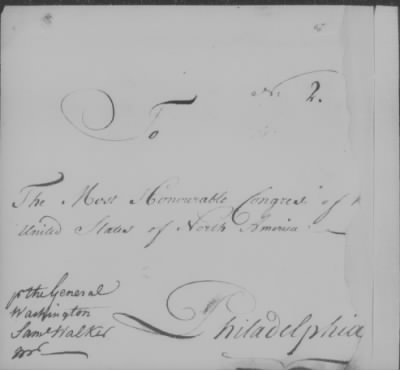 No. 2.
To
The Most Honourable Congress of
United States of North America
pr the General
Washington
Saml Walker
Philadelphia